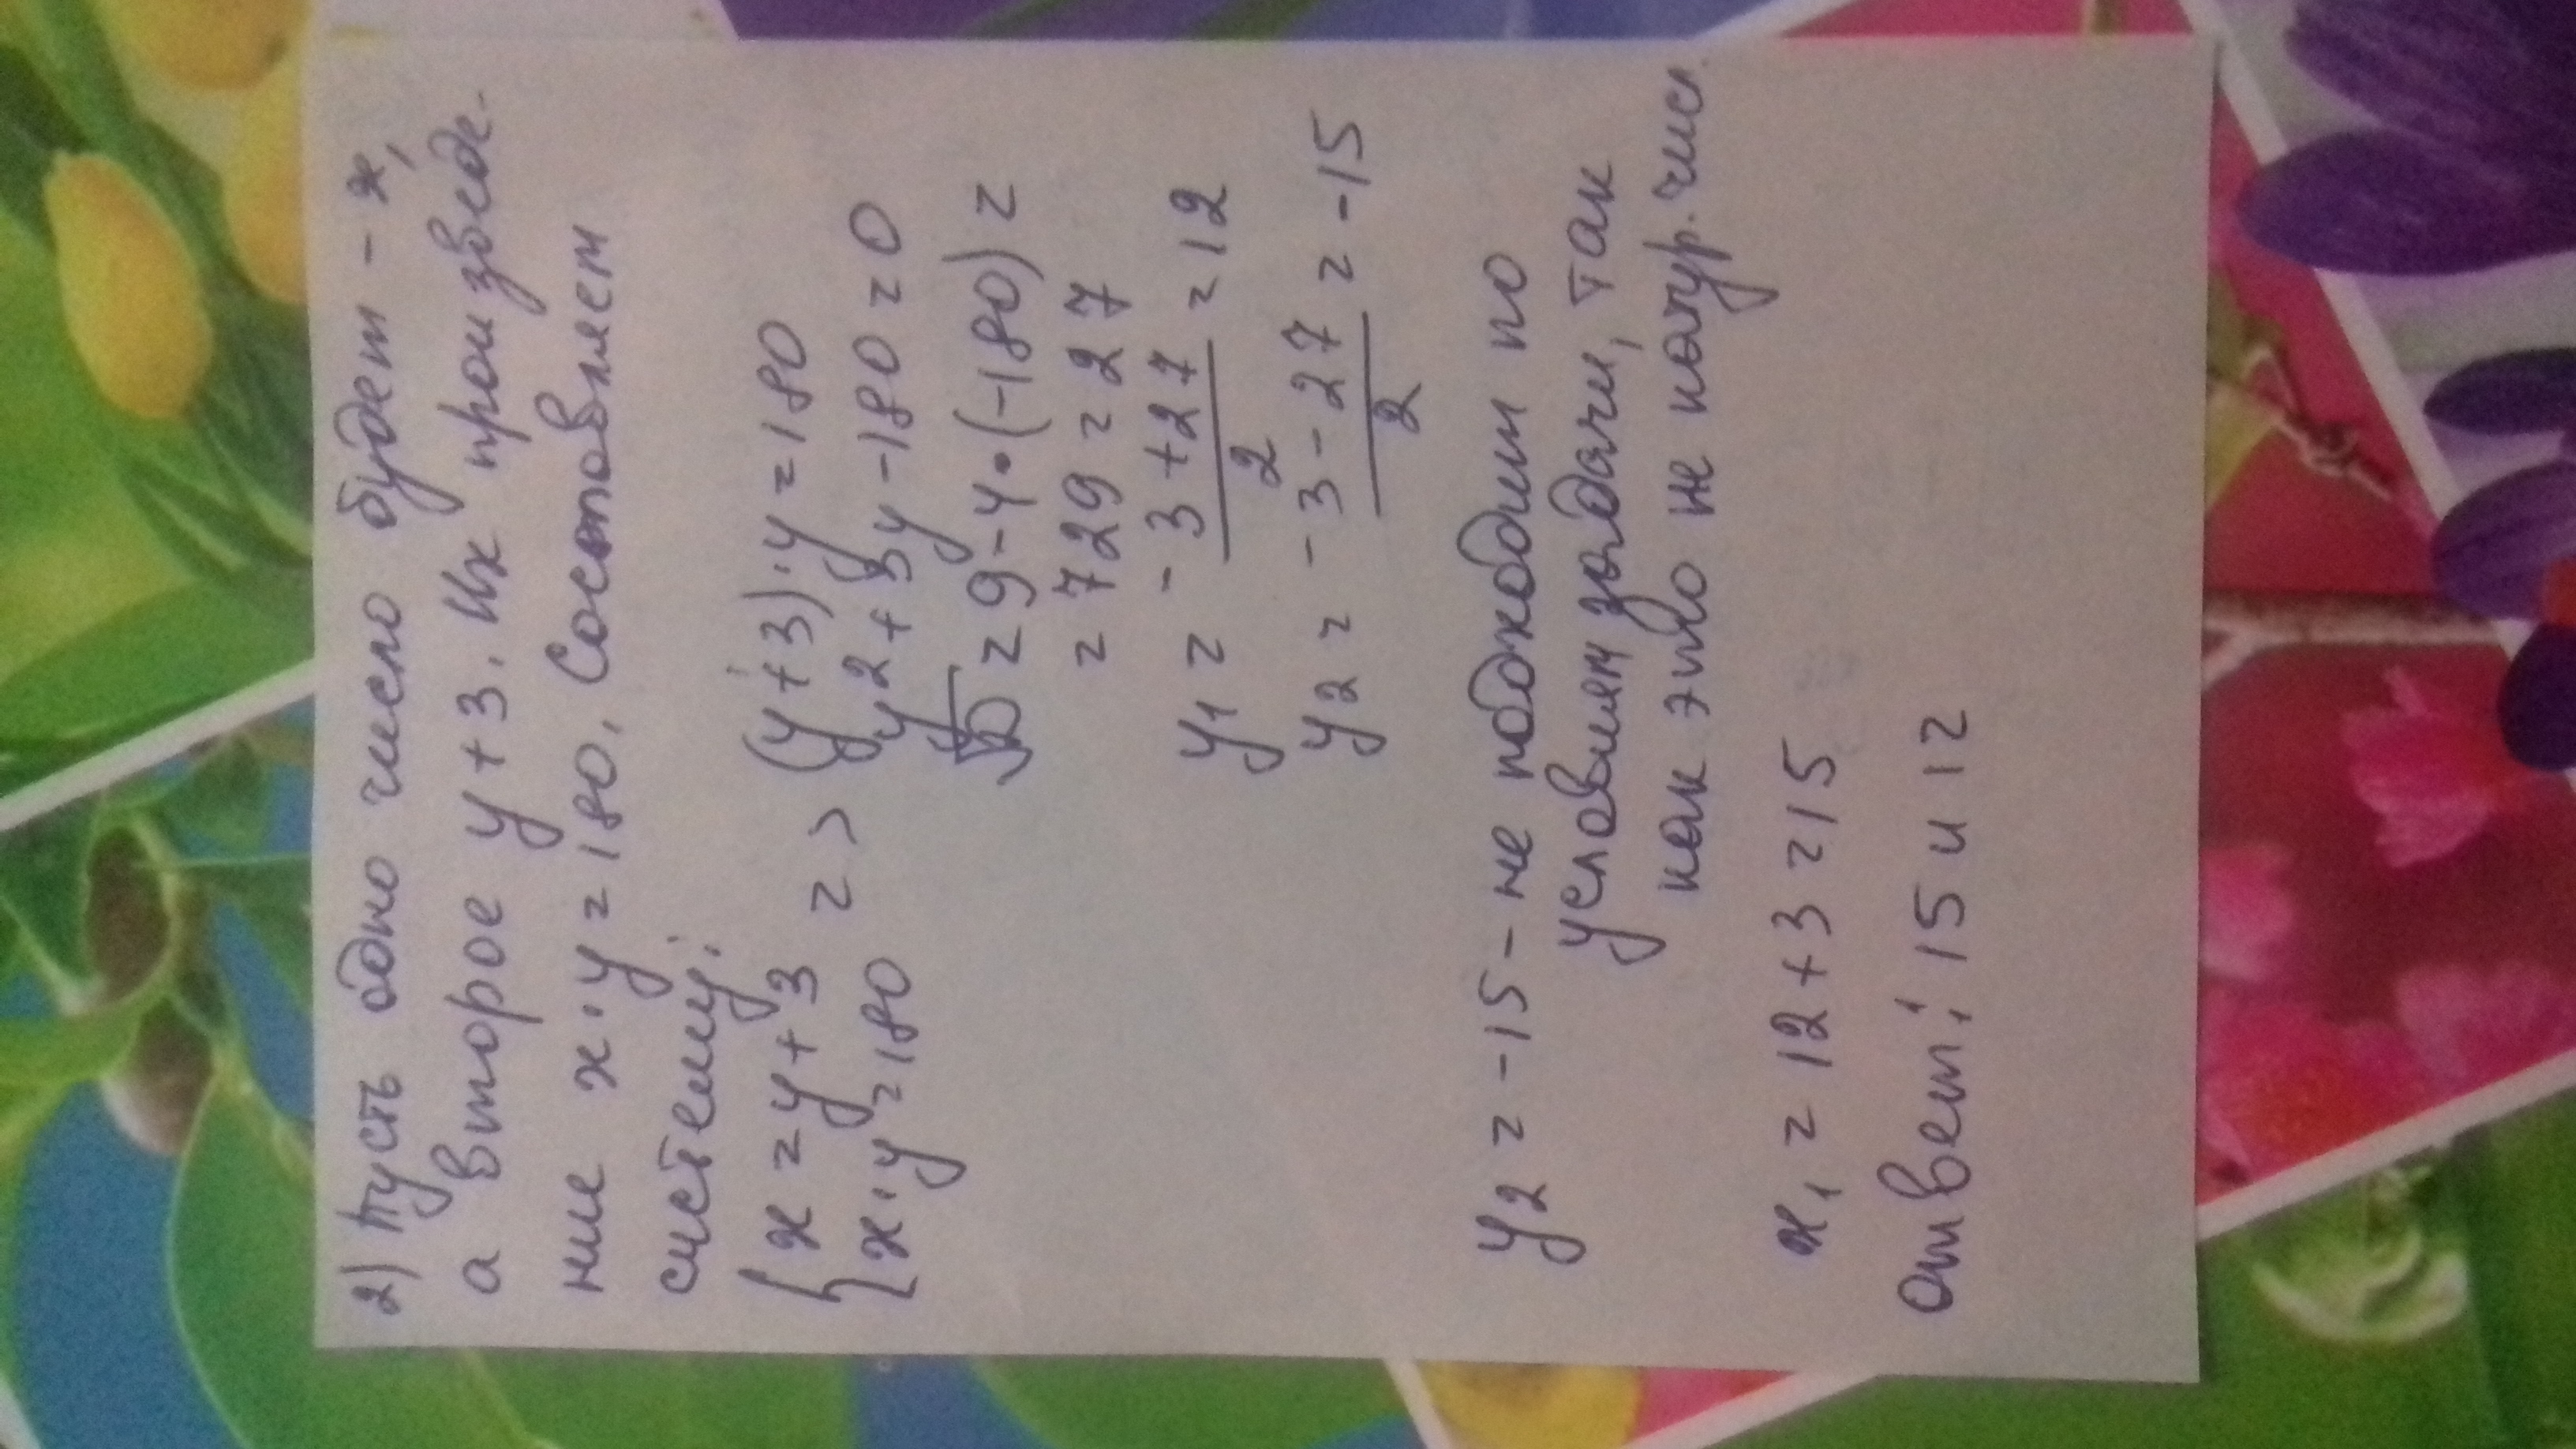 2) Пусть одно число будет - x,
а второе y + 3. Их произведе-
ние x · y = 180. Составляем
систему:
{ x = y + 3 => (y + 3) · y = 180
{ x · y = 180 y² + 3y - 180 = 0
√D = 9 - 4 · (-180) =
= 729 = 27
y₁ = - 3 + 27 / 2 = 12
y₂ = - 3 - 27 / 2 = -15
y₂ = -15 - не подходит по
условиям задачи, так
как это не натур. числ.
x₁ = 12 + 3 = 15
Ответ: 15 и 12